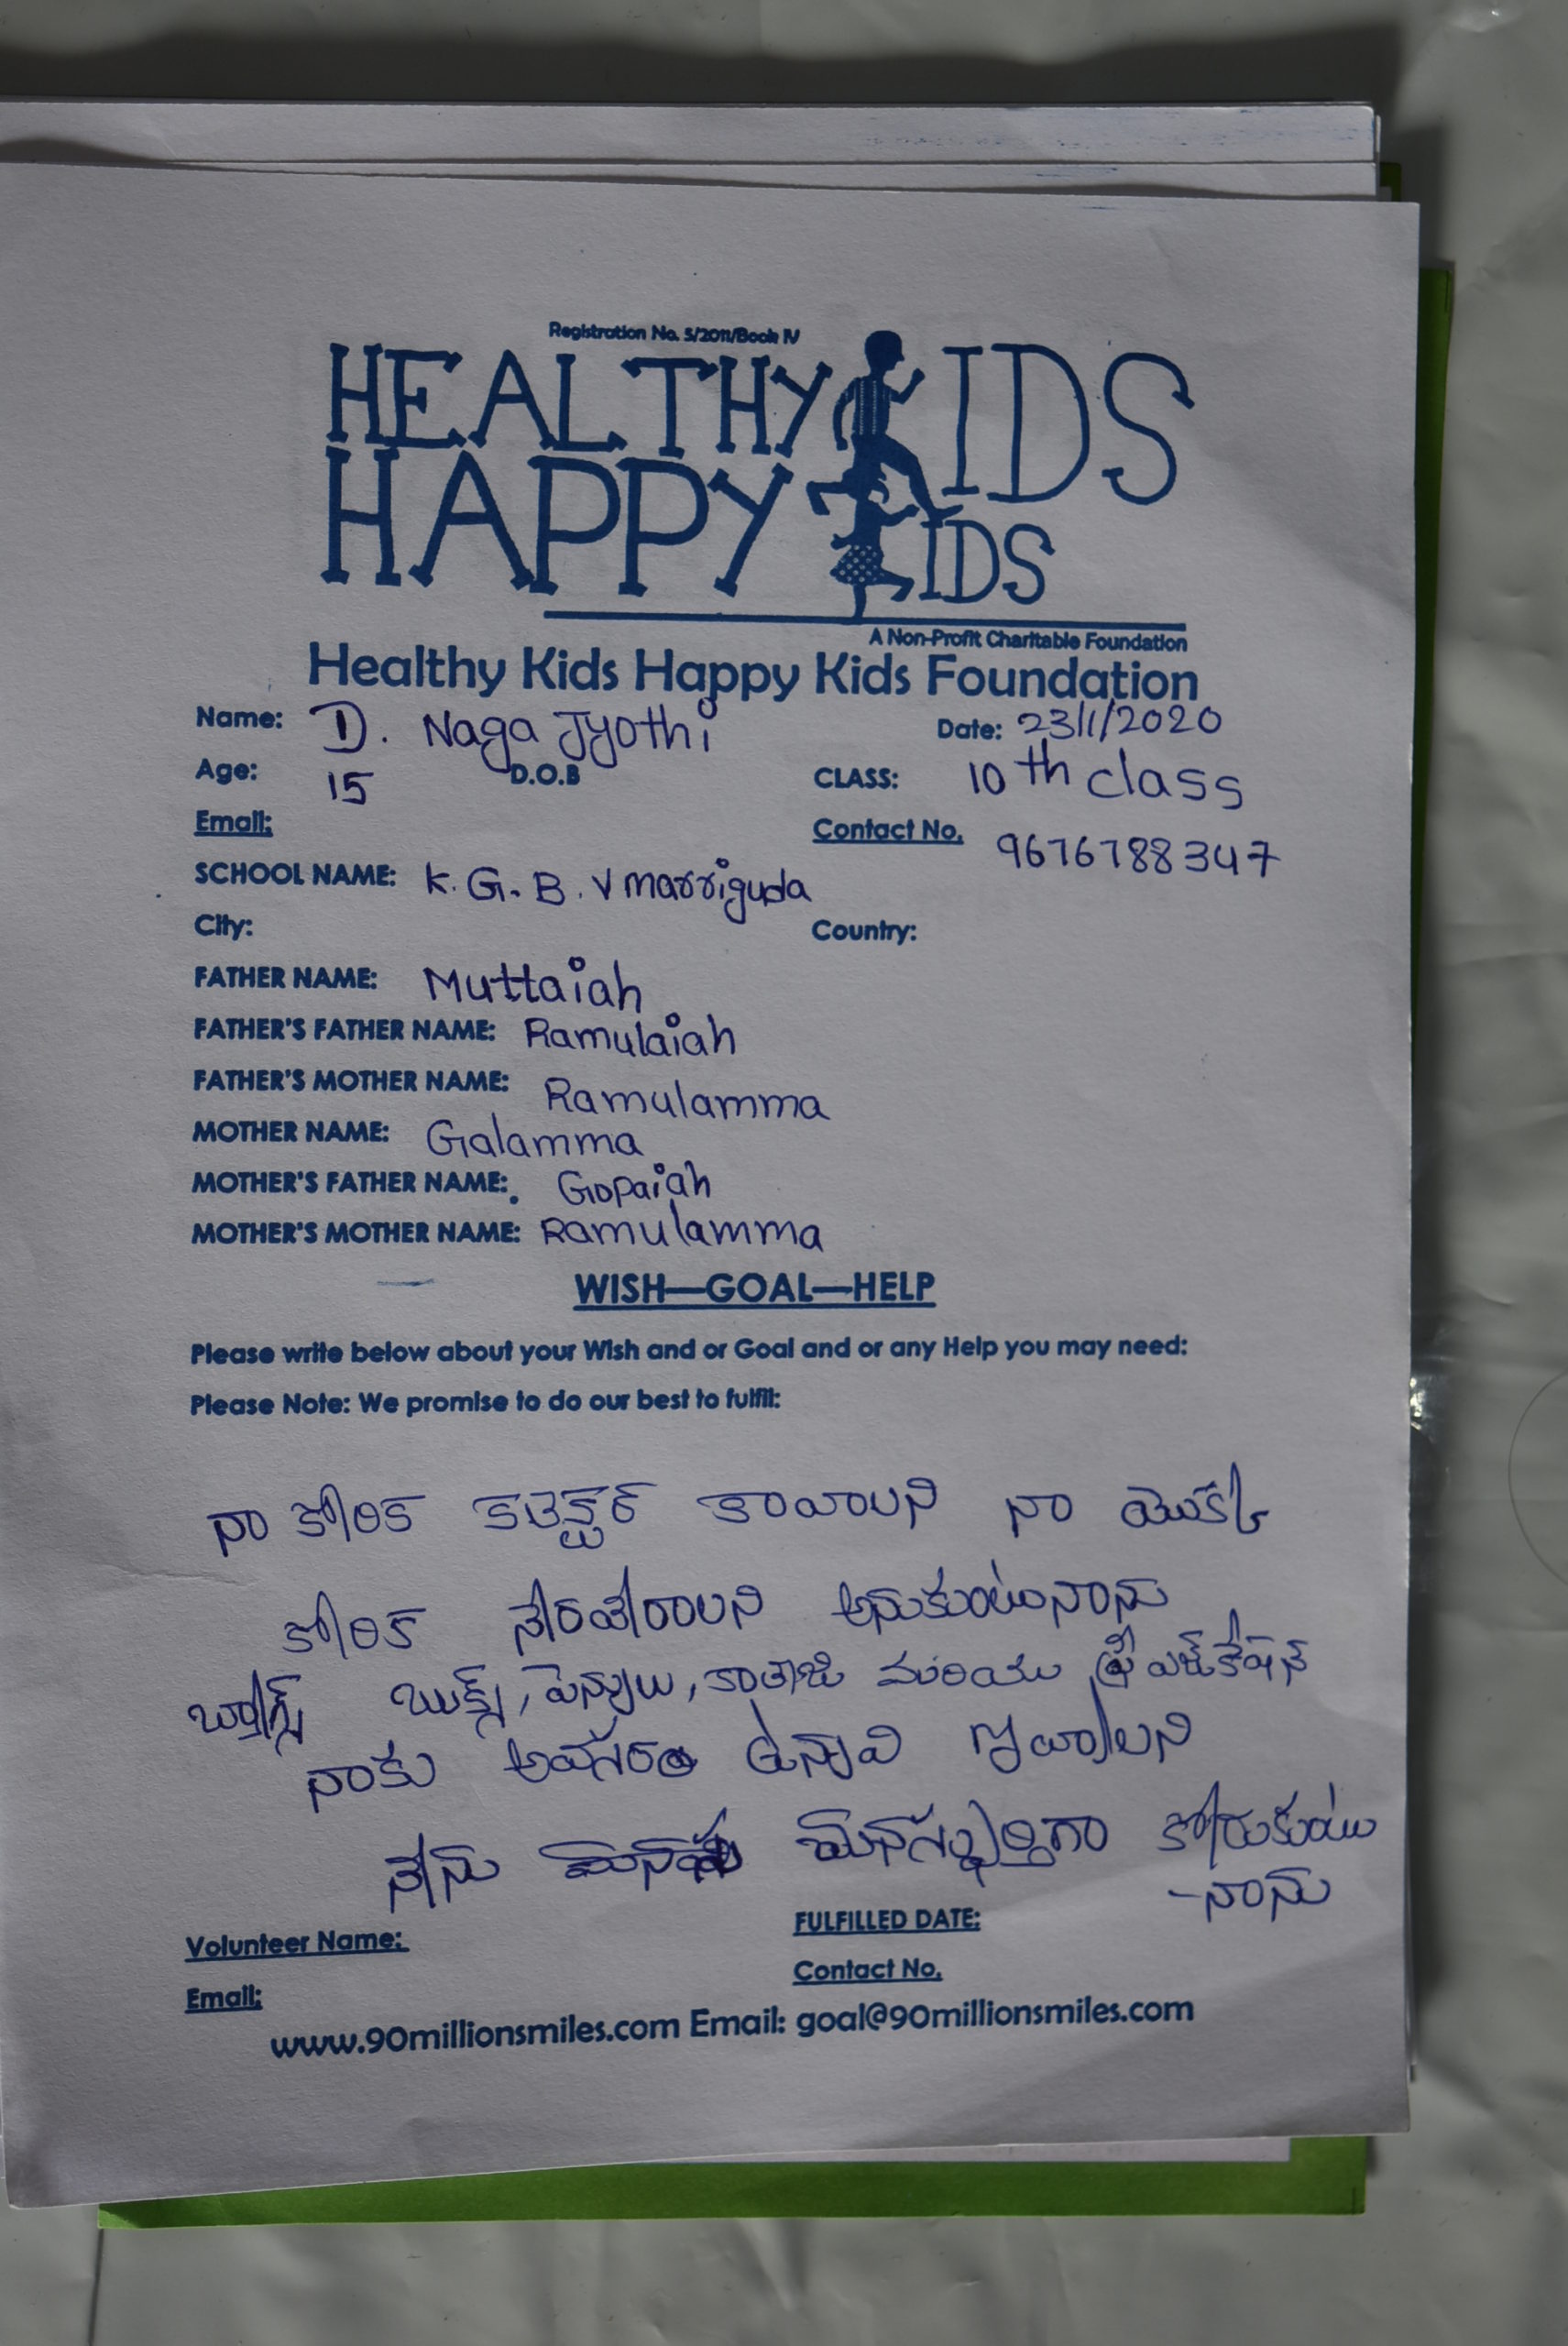 Registration No. 5/2011/Book IV
HEALTHY KIDS
HAPPY KIDS
A Non-Profit Charitable Foundation
Healthy Kids Happy Kids Foundation
Name: D. Naga Jyothi Date: 23/1/2020
Age: 15 D.O.B CLASS: 10th class
Email: Contact No. 9676788347
SCHOOL NAME: K. G. B. V marriguda
City: Country:
FATHER NAME: Muttaiah
FATHER'S FATHER NAME: Ramulaiah
FATHER'S MOTHER NAME: Ramulamma
MOTHER NAME: Galamma
MOTHER'S FATHER NAME: Gopaiah
MOTHER'S MOTHER NAME: Ramulamma
WISH—GOAL—HELP
Please write below about your Wish and or Goal and or any Help you may need:
Please Note: We promise to do our best to fulfil:
నా కోరిక కలెక్టర్ కావాలని నా యొక్క
కోరిక నేరవేరాలని అనుకుంటునాను
బ్యాగ్స్ బుక్స్, పెన్నులు, కాతాజి మరియు ఫ్రీ ఎజ్‌కేషన్
నాకు అవసరం ఉన్నవి ఇవ్వాలని
నేను మనస్పూర్తిగా కోరుకుంటు
-నాను
Volunteer Name: FULFILLED DATE:
Email: Contact No.
www.90millionsmiles.com Email: goal@90millionsmiles.com